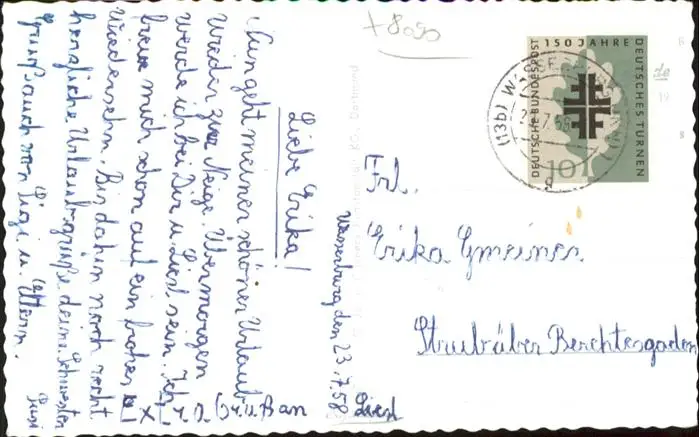 +8090
Wasserburg den 23.7.58
Liebe Erika!
Nun geht meiner schöner Urlaub
wieder zur Neige. Übermorgen
werde ich bei Dir u. Liesl sein. Ich
freue mich schon auf ein frohes
Wiedersehn. Bis dahin noch recht
herzliche Urlaubsgrüße deine Schwester
Gruß auch von
u. Eltern.
Gr. u. B an Liesl
Frl.
Erika Gmeiner
Strub über Berchtesgaden
DEUTSCHE BUNDESPOST
150 JAHRE
DEUTSCHES TURNEN
10
(13b) W
7.58
d